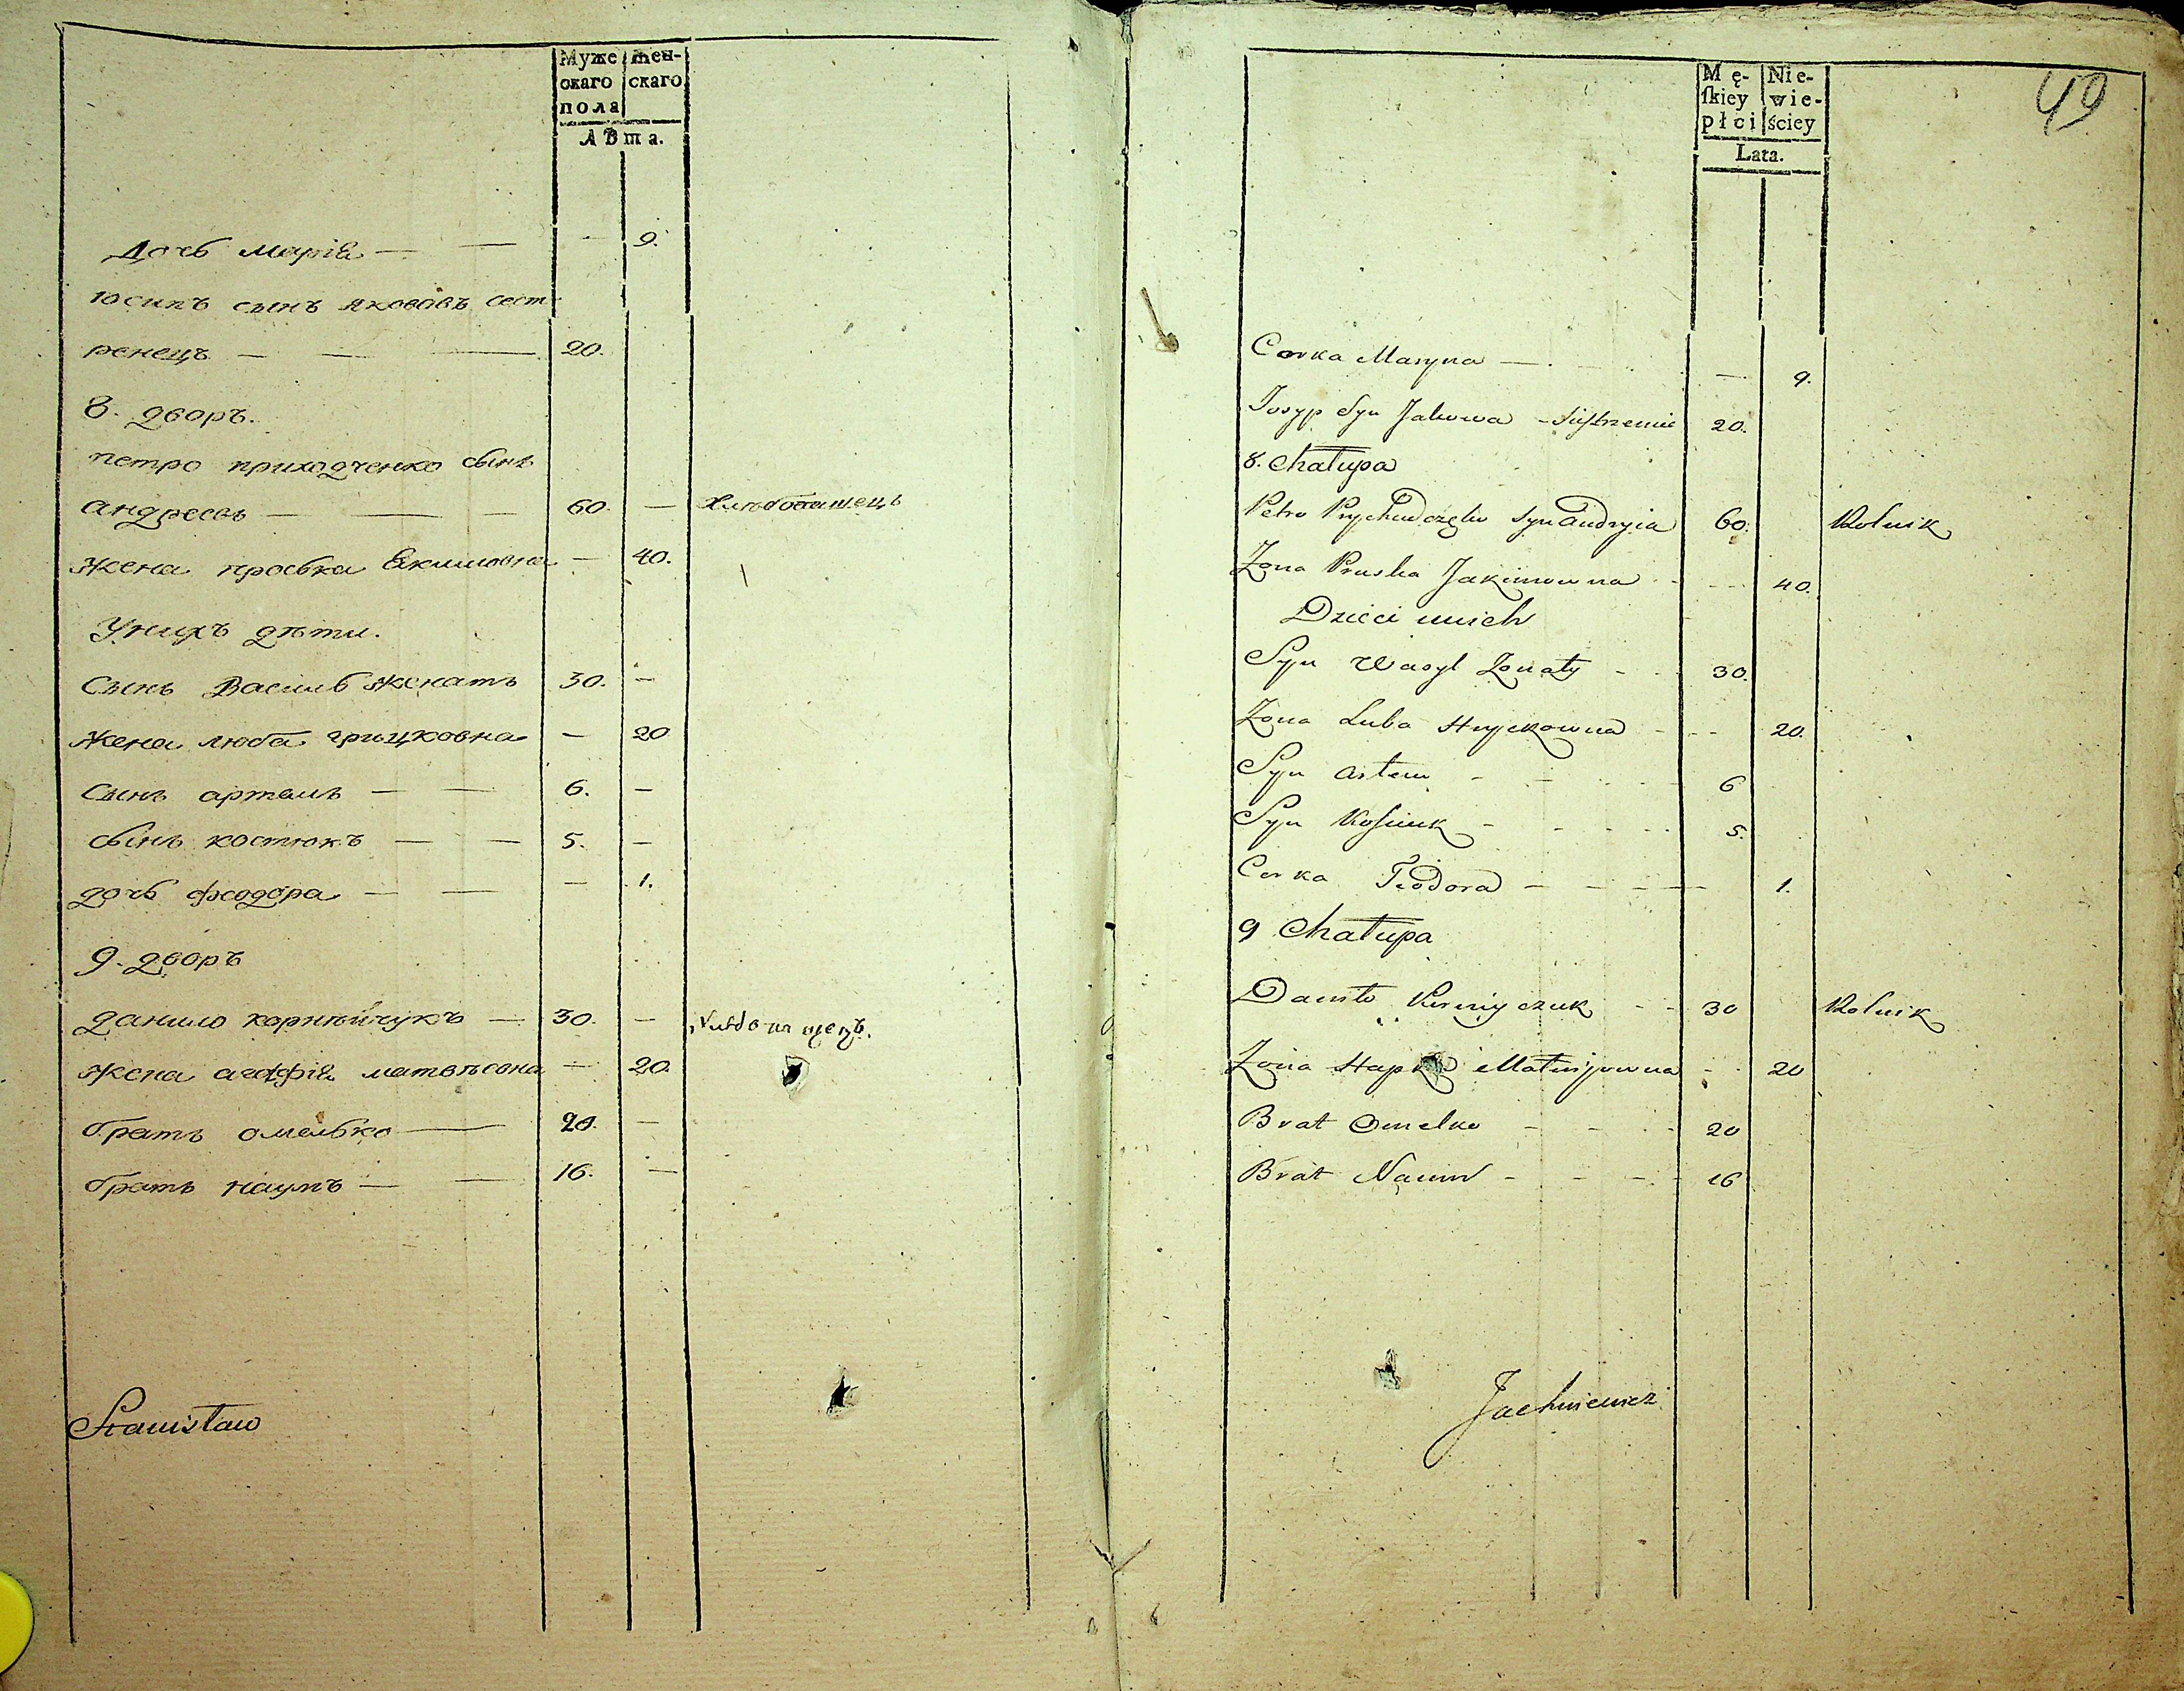 Муже скаго пола
Жен- скаго
лѣта.
дочь марія — — — 9.
юсипъ сынъ яковавъ сест
ренецъ — — — 20.
8. дворъ.
петро приходченко сынъ
андреевъ — — — 60. — хлѣбопашецъ
жена проська Екимовна — 40.
у нихъ дѣти.
сынъ василь женатъ 30. —
жена люба грицковна — 20
сынъ артемъ — — 6. —
сынъ костюкъ — — 5. —
дочь феодора — — — 1.
9. дворъ
данило корнѣйчукъ — 30. — хлѣбопашецъ.
жена агафія матвѣевна — 20.
братъ омелько — 20. —
братъ наумъ — — 16. —
Stanisław
49
Mę- ſkiey płci
Nie- wie- ściey
Lata.
Corka Maryna — — 9.
Josyp Syn Jakowa - Siostrzeniec 20.
8. Chałupa
Petro Prychodczęko Syn Andryia 60. Rolnik
Zona Pruska Jakimowna - - 40.
Dzieci u nich
Syn Wasyl Zonaty - - 30.
Zona Luba Hryckowna - - 20.
Syn Artem - - - 6
Syn Kostiuk - - - 5.
Corka Teodora - - - - 1.
9 Chałupa
Daniło Korniyczuk - - 30 Rolnik
Zona Hapka Matwijowna - - 20
Brat Omelko - - - 20
Brat Naum - - - 16
Jachniewicz